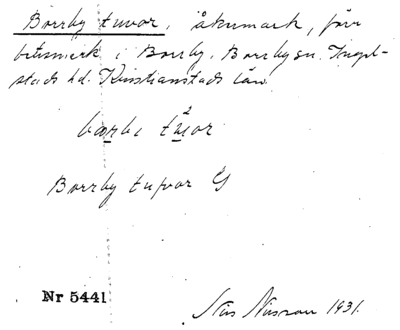 Borrby tuvor, åkermark, förr
betesmark i Borrby, Borrby sn. Ingel-
stads hd. Kristianstads län.
Borrby tuvor G
Nr 5441
Nilsson 1931.